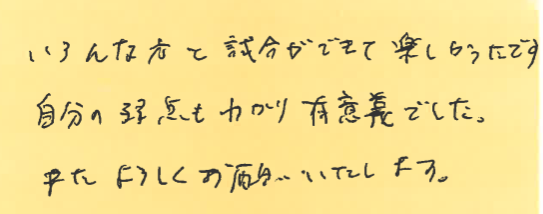 いろんな方と試合ができて楽しかったです
自分の弱点もわかり有意義でした。
またよろしくお願いいたします。